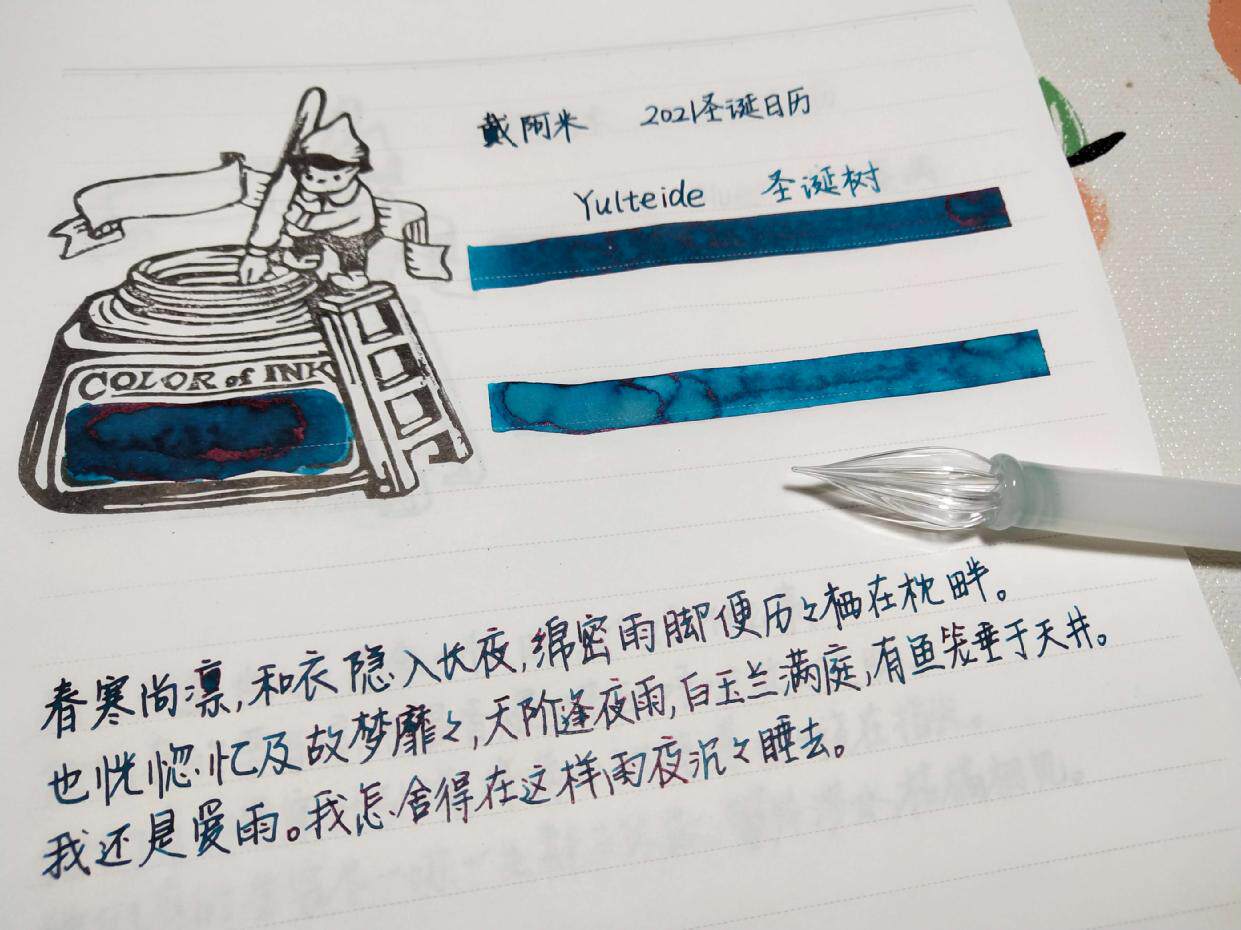 戴阿米 2021圣诞日历
Yulteide 圣诞树
COLOR of INK
春寒尚凛,和衣隐入长夜,绵密雨脚便历々栖在枕畔。
也恍惚忆及故梦靡々,天阶逢夜雨,白玉兰满庭,有鱼笼垂于天井。
我还是爱雨。我怎舍得在这样雨夜沉々睡去。